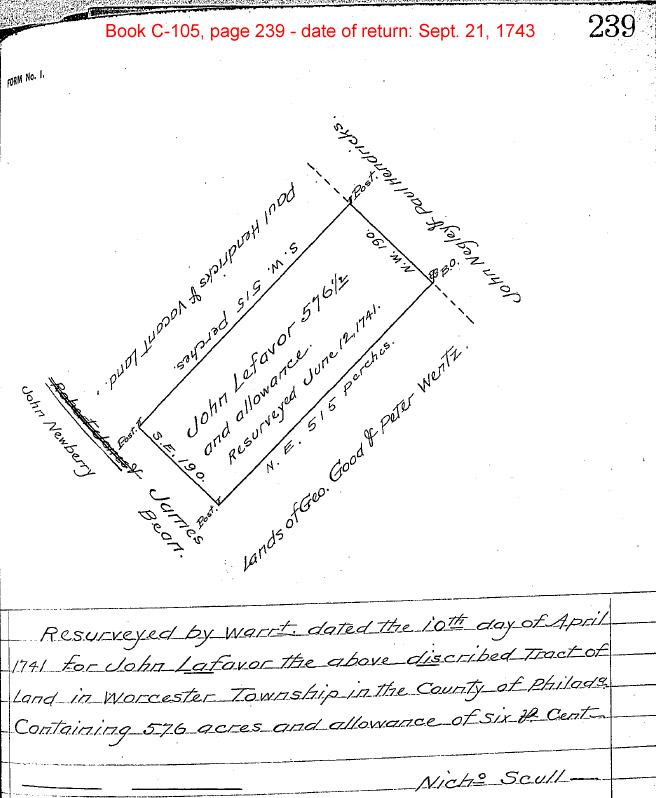 Book C-105, page 239 - date of return: Sept. 21, 1743
239
FORM No. 1.
John Negley & Paul Hendricks.
Post.
Paul Hendricks & Vacant Land.
S. W. 515 perches.
N.W. 190.
B.O.
John Lefavor 576 1/2
and allowance.
Resurveyed June 12, 1741.
N. E. 515 perches.
Lands of Geo. Good & Peter Wentz.
Post.
S.E. 190.
Post.
Robert Jones &
John Newberry
James
Bean.
Resurveyed by Warrt. dated the 10th day of April
1741 for John Lafavor the above discribed Tract of
Land in Worcester Township in the County of Philada.
Containing 576 acres and allowance of six p Cent
Nicho Scull